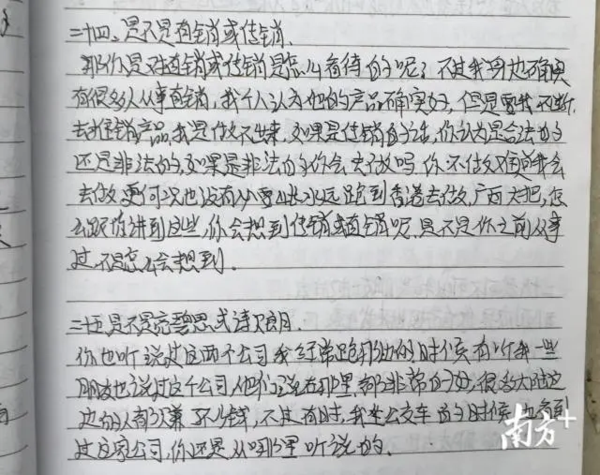 二十四、是不是直销或传销.
那你是对直销或传销是怎么看待的呢?不过我身边确实
有很多人从事直销,我个人认为他们的产品确实好,但是要我不断
去推销产品,我是做不出来,如果是传销的话,你认为是合法的
还是非法的,如果是非法的你会去做吗 你不做难道我会
去做 更何况也没有必要山长水远跑到香港去做,广西大把,怎
么跟你讲到这些,你会想到传销或直销呢,是不是你之前从事
过,不是怎么会想到.
二十五是不是完碧思或诗贝朗.
你也听说过这两个公司 我经常跑那边的时候 有听我一些
朋友也说过这个公司,他们说在那里都非常的好,很多大陆这
边的人都赚了不少钱,不过有时,我坐公交车的时候 也看到
过这家公司,你还是从哪里听说的.
南方+